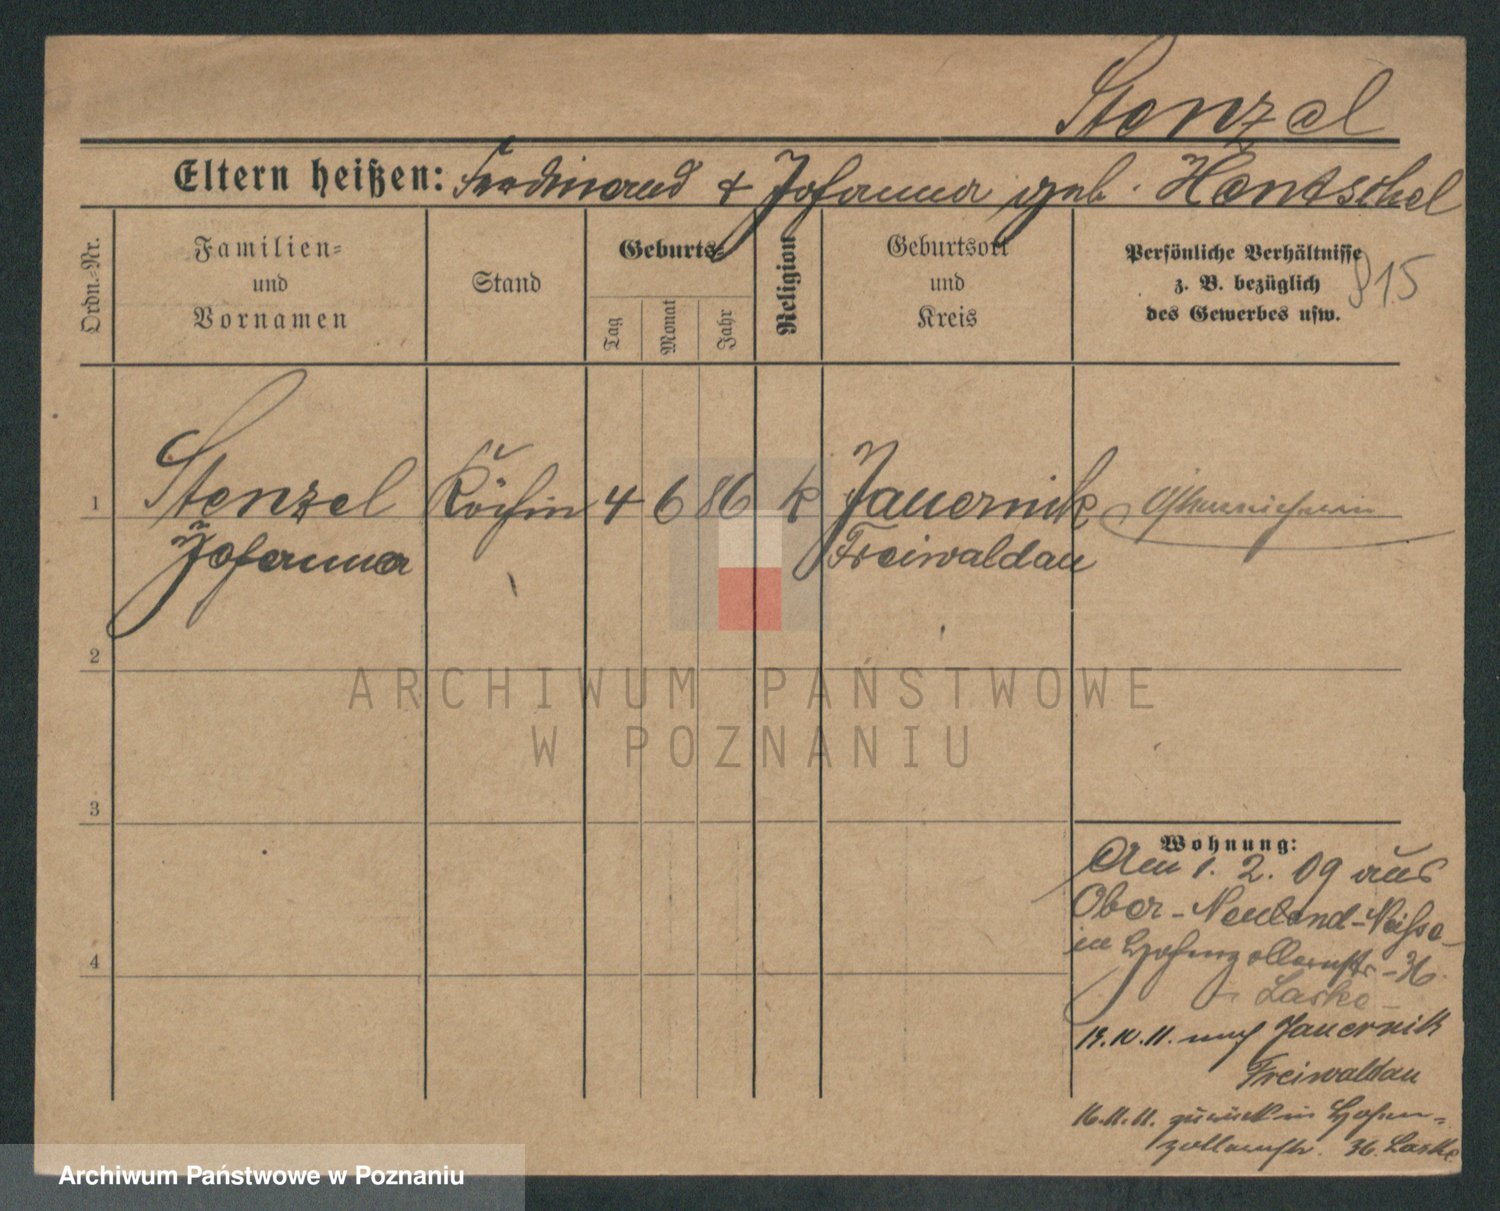 Stenzel
Eltern heißen: Ferdinand + Johanna geb. Hentschel
Ordn.-Nr.
Familien-
und
Vornamen
Stand
Geburts-
Tag
Monat
Jahr
Religion
Geburtsort
und
Kreis
Persönliche Verhältnisse
z. B. bezüglich
des Gewerbes usw.
915
1 Stenzel Köchin 4 6 86 k Jauernik Österreicherin
Johanna Freiwaldau
2
ARCHIWUM PAŃSTWOWE
W POZNANIU
3
Wohnung:
Am 1. 2. 09 aus
Ober-Neuland-Neisse
4
in Hohenzollernstr. 36.
Laske
19.10.11. nach Jauernik
Freiwaldau
16.11.11. zurück in Hohen-
zollernstr. 36. Laske
Archiwum Państwowe w Poznaniu